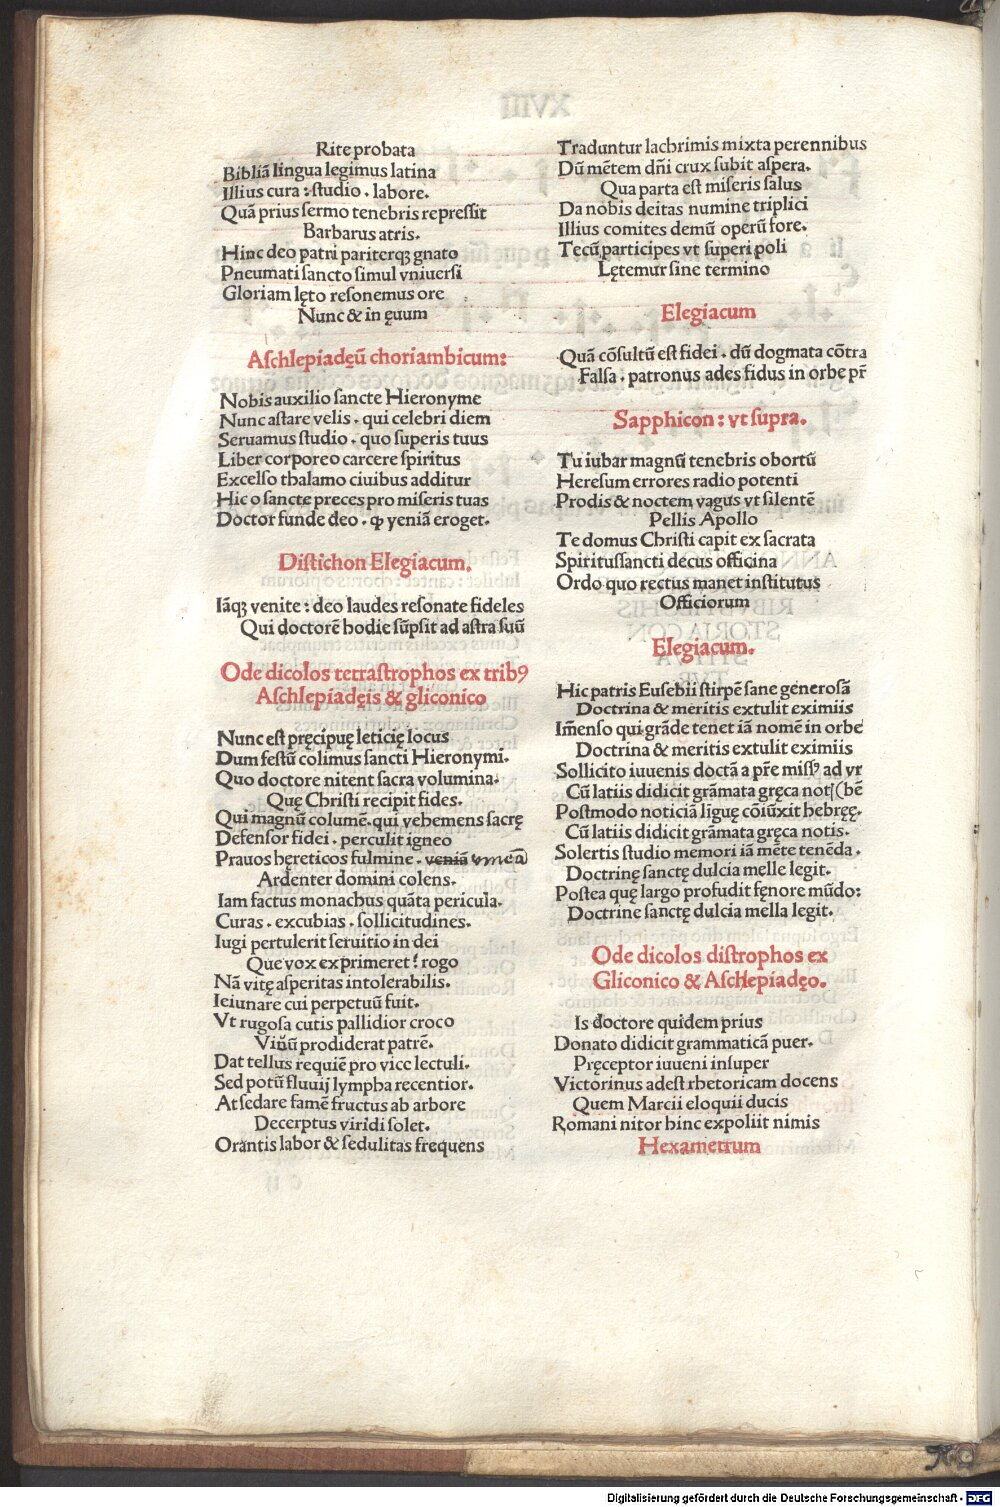 Rite probata
Bibliā lingua legimus latina
Illius cura : studio . labore.
Quā prius sermo tenebris repressit
Barbarus atris.
Hinc deo patri pariterqꝫ gnato
Pneumati sancto simul vniuersi
Gloriam lęto resonemus ore
Nunc & in ęuum
Aschlepiadęū choriambicum:
Nobis auxilio sancte Hieronyme
Nunc astare velis . qui celebri diem
Seruamus studio . quo superis tuus
Liber corporeo carcere spiritus
Excelso thalamo ciuibus additur
Hic o sancte preces pro miseris tuas
Doctor funde deo . ꝙ veniā eroget.
Distichon Elegiacum.
Iāqꝫ venite : deo laudes resonate fideles
Qui doctorē hodie sūpsit ad astra suū
Ode dicolos tetrastrophos ex tribꝰ
Aschlepiadęis & gliconico
Nunc est pręcipuę leticię locus
Dum festū colimus sancti Hieronymi.
Quo doctore nitent sacra volumina.
Quę Christi recipit fides.
Qui magnū columē.qui vehemens sacrę
Defensor fidei . perculit igneo
Prauos hęreticos fulmine . veniā vineā
Ardenter domini colens.
Iam factus monachus quāta pericula.
Curas . excubias . sollicitudines.
Iugi pertulerit seruitio in dei
Que vox exprimeret ! rogo
Nā vitę asperitas intolerabilis.
Ieiunare cui perpetuū fuit.
Vt rugosa cutis pallidior croco
Viñū prodiderat patrē.
Dat tellus requiē pro vice lectuli.
Sed potū fluuij lympha recentior.
At sedare famē fructus ab arbore
Decerptus viridi solet.
Orantis labor & sedulitas frequens
Traduntur lachrimis mixta perennibus
Dū mētem dñi crux subit aspera.
Qua parta est miseris salus
Da nobis deitas numine triplici
Illius comites demū operū fore.
Tecū participes vt superi poli
Lętemur sine termino
Elegiacum
Quā cōsultū est fidei . dū dogmata cōtra
Falsa . patronus ades fidus in orbe pr̄
Sapphicon : vt supra.
Tu iubar magnū tenebris obortū
Heresum errores radio potenti
Prodis & noctem vagus vt silentē
Pellis Apollo
Te domus Christi capit ex sacrata
Spiritussancti decus officina
Ordo quo rectus manet institutus
Officiorum
Elegiacum.
Hic patris Eusebii stirpē sane generosā
Doctrina & meritis extulit eximiis
Im̄enso qui grāde tenet iā nomē in orbe
Doctrina & meritis extulit eximiis
Sollicito iuuenis doctā a pr̄e missꝰ ad vr
Cū latiis didicit grāmata gręca not⌠(bē
Postmodo noticiā liguę cōiūxit hebręę.
Cū latiis didicit grāmata gręca notis.
Solertis studio memori iā mēte tenēda .
Doctrinę sanctę dulcia melle legit.
Postea quę largo profudit fęnore mūdo:
Doctrine sanctę dulcia mella legit.
Ode dicolos distrophos ex
Gliconico & Aschlepiadęo.
Is doctore quidem prius
Donato didicit grammaticā puer.
Pręceptor iuueni insuper
Victorinus adest rhetoricam docens
Quem Marcii eloquii ducis
Romani nitor hinc expoliit nimis
Hexametrum
Digitalisierung gefördert durch die Deutsche Forschungsgemeinschaft - DFG